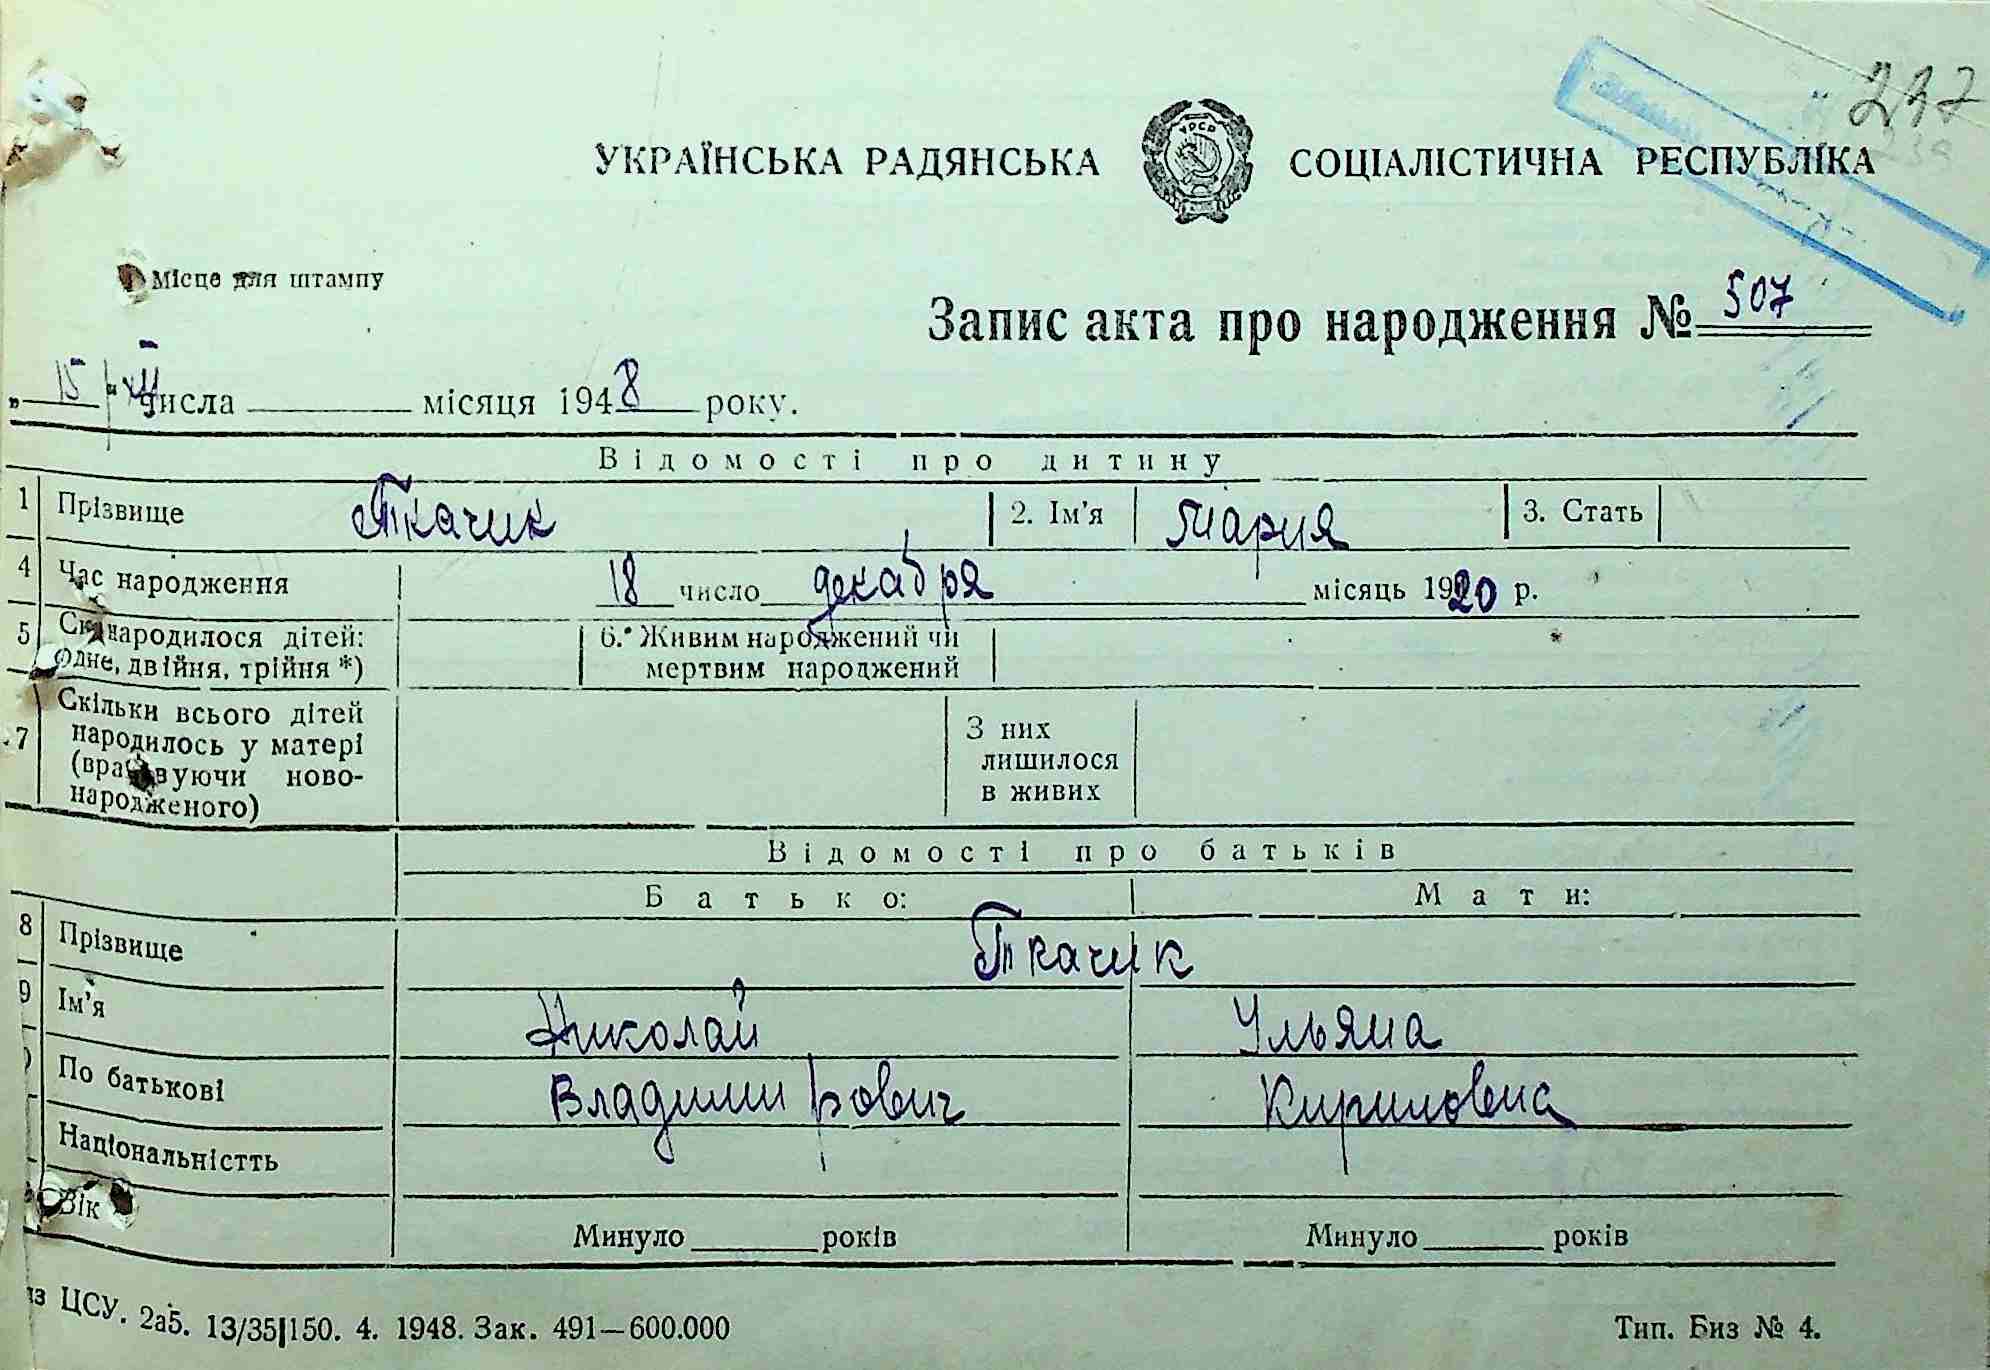 237
УКРАЇНСЬКА РАДЯНСЬКА СОЦІАЛІСТИЧНА РЕСПУБЛІКА
УРСР
Місце для штампу
Запис акта про народження № 507
„ 15 " числа місяця 1948 року.
Відомості про дитину
1 Прізвище Ткачик 2. Ім'я Мария 3. Стать
4 Час народження 18 число декабря місяць 1920 р.
5 Ск народилося дітей: одне, двійня, трійня *) 6. Живим народжений чи мертвим народжений
7 Скільки всього дітей народилось у матері (враховуючи ново-народженого) З них лишилося в живих
Відомості про батьків
Батько: Мати:
8 Прізвище Ткачик
9 Ім'я Николай Ульяна
По батькові Владимирович Кириловна
Національністть
Вік Минуло років Минуло років
ЦСУ. 2а5. 13/35|150. 4. 1948. Зак. 491—600.000 Тип. Биз № 4.